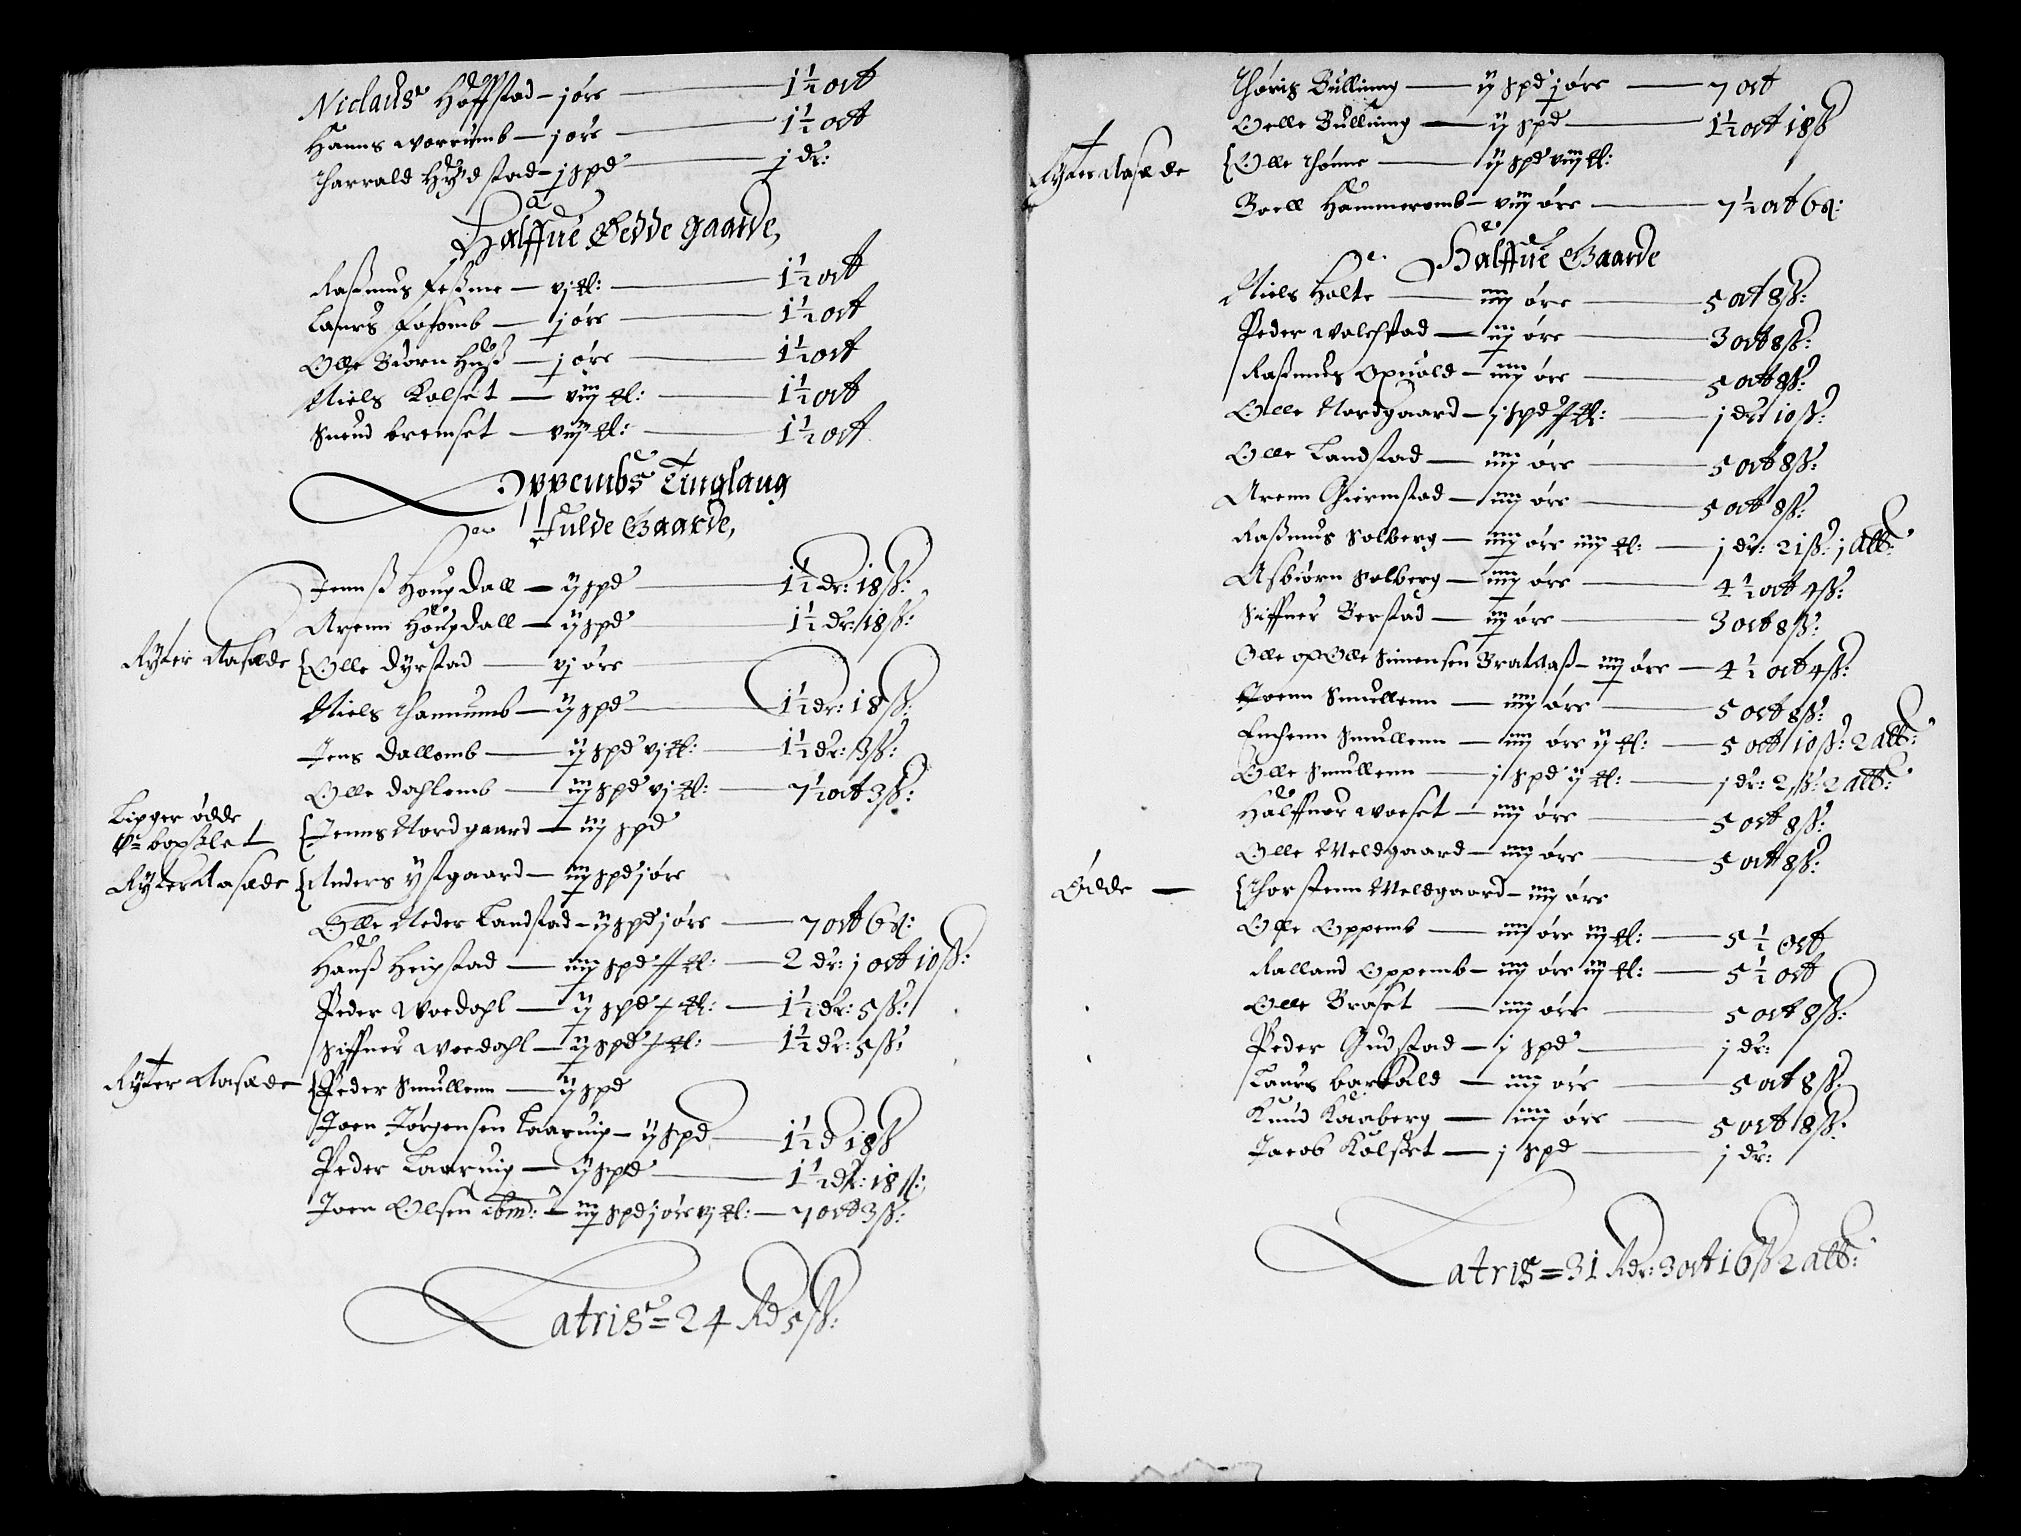 Niclaus Hoffstad – j øre — 1½ ort
Hanns worrumb – j øre — 1½ ort
Harrald Hydstad – j spd — j dr:
Halffue Øedde gaarde,
Rasmus Feßme — vj tl: — 1½ ort
Laurs Fosomb — j øre — 1½ ort
Olle Biørn Huß — j øre — 1½ ort
Niels Kolset — viij tl: — 1½ ort
Suend bremset — viij tl: — 1½ ort
Oppembs Tinglaug
Fulde Gaarde,
Jennß Houpdall — ij spd — 1½ dr: 18 ß:
Arenn Houpdall — ij spd — 1½ dr: 18 ß:
Ryter Aasæde { Olle dyrstad — vj øre
Niels Thannumb — ij spd — 1½ dr: 18 ß:
Jens dallomb — ij spd vj tl: — 1½ dr: 3 ß:
Olle dahlemb — iij spd vj tl: — 7½ ort 3 ß:
Ligger ødde
{ Jenns Nordgaard — iij spd
Ryter Aasæde { Anders ystgaard — iij spd j øre
Olle Neder Landstad – ij spd j øre — 7 ort 6 ß:
Hanß Heigstad — iiij spd tl: — 2 dr: j ort 10 ß:
Peder Woedahl — ij spd tl: — 1½ dr: 5 ß:
Siffuer Woedahl — ij spd tl: — 1½ dr: 5 ß:
Ryter Aasæde { Peder Smullenn — ij spd
Joen Jørgensen Laaruig – ij spd — 1½ d 18 ß
Peder Laaruig — ij spd — 1½ dr: 18 ß:
Joen Olsen ibm: – iij spd j øre vj tl: — 7 ort 3 ß:
Latris = 24 Rd 5 ß:
Thoris Bulling — ij spd j øre — 7 ort
Oelle Bulling — ij spd — 1½ ort 18 ß
Ryter Aasæde { Olle Thønne — ij spd viij tl:
Boell Hammeromb – viij øre — 7½ ort 6 ß:
Halffue Gaarde
Niels Holte — iiij øre — 5 ort 8 ß:
Peder walchstad — iij øre — 3 ort 8 ß:
Rasmus Opuold – iiij øre — 5 ort 8 ß:
Olle Nordgaard – j spd tl: — j dr: 10 ß:
Olle Landstad — iiij øre — 5 ort 8 ß:
Arenn Giermstad – iiij øre — 5 ort 8 ß:
Rasmus Solberg – iiij øre iiij tl: — j dr: 21 ß: j alb:
Asbiørn Solberg – iiij øre — 4½ ort 4 ß:
Siffuer Berstad — iij øre — 3 ort 8 ß:
Olle op Olle Simensen Brattaaß – iiij øre — 4½ ort 4 ß:
Joenn Smullenn — iiij øre — 5 ort 8 ß:
Smullenn — iiij øre ij tl: — 5 ort 10 ß: 2 alb:
Olle Smullenn — j spd ij tl: — j dr: 2 ß: 2 alb:
Halffuor woeset — iiij øre — 5 ort 8 ß:
Olle Meldgaard — iiij øre — 5 ort 8 ß:
Ødde — { Thorstenn Meldgaard – iiij øre
Olle Oppemb — iiij øre iij tl: — 5½ ort
Ralland Oppemb – iiij øre iij tl: — 5½ ort
Olle Braset — iiij øre — 5 ort 8 ß:
Peder Gudstad – j spd — j dr:
Laurs barkald — iiij øre — 5 ort 8 ß:
Knud Kaaberg — iiij øre — 5 ort 8 ß:
Jacob Kolset — j spd — j dr:
Latris = 31 Rdr: 3 ort 16 ß 2 alb: